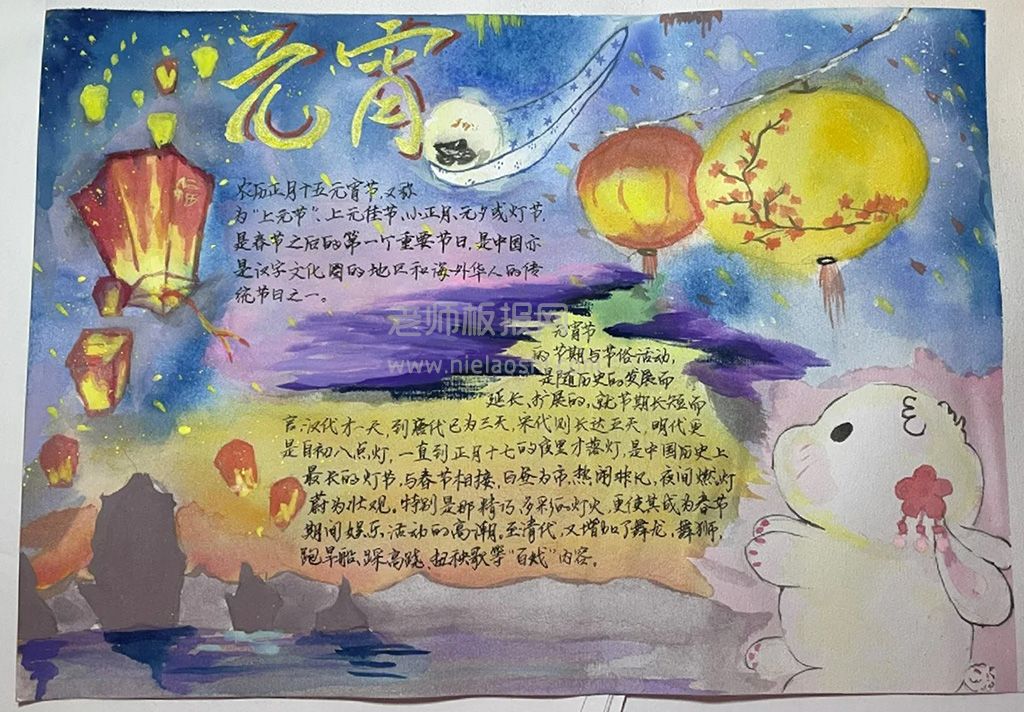 元宵
福
农历正月十五元宵节,又称
为"上元节"、上元佳节、小正月、元夕或灯节,
是春节之后的第一个重要节日,是中国亦
是汉字文化圈的地区和海外华人的传
统节日之一。
老师板报网
www.nielaos
元宵节
的节期与节俗活动,
是随历史的发展而
延长、扩展的,就节期长短而
言,汉代才一天,到唐代已为三天,宋代则长达五天,明代更
是自初八点灯,一直到正月十七的夜里才落灯,是中国历史上
最长的灯节,与春节相接,白昼为市,热闹非凡,夜间燃灯
蔚为壮观。特别是那精巧、多彩的灯火,更使其成为春节
期间娱乐活动的高潮。至清代,又增加了舞龙、舞狮、
跑旱船、踩高跷、扭秧歌等"百戏"内容。